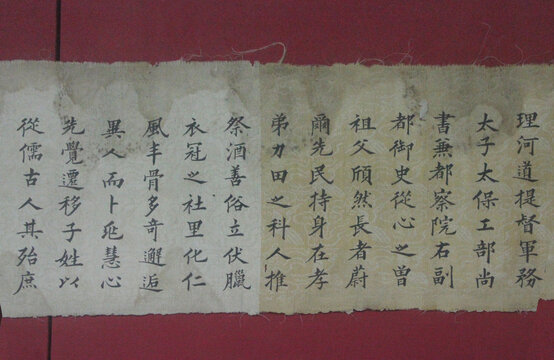 理河道提督軍務
太子太保工部尚
書兼都察院右副
都御史從心之曽
祖父頎然長者蔚
爾先民持身在孝
弟力田之科人推
祭酒善俗立伏臘
衣冠之社里化仁
風丰骨多奇邂逅
異人而卜兆慧心
先覺遷移子姓以
從儒古人其殆庶